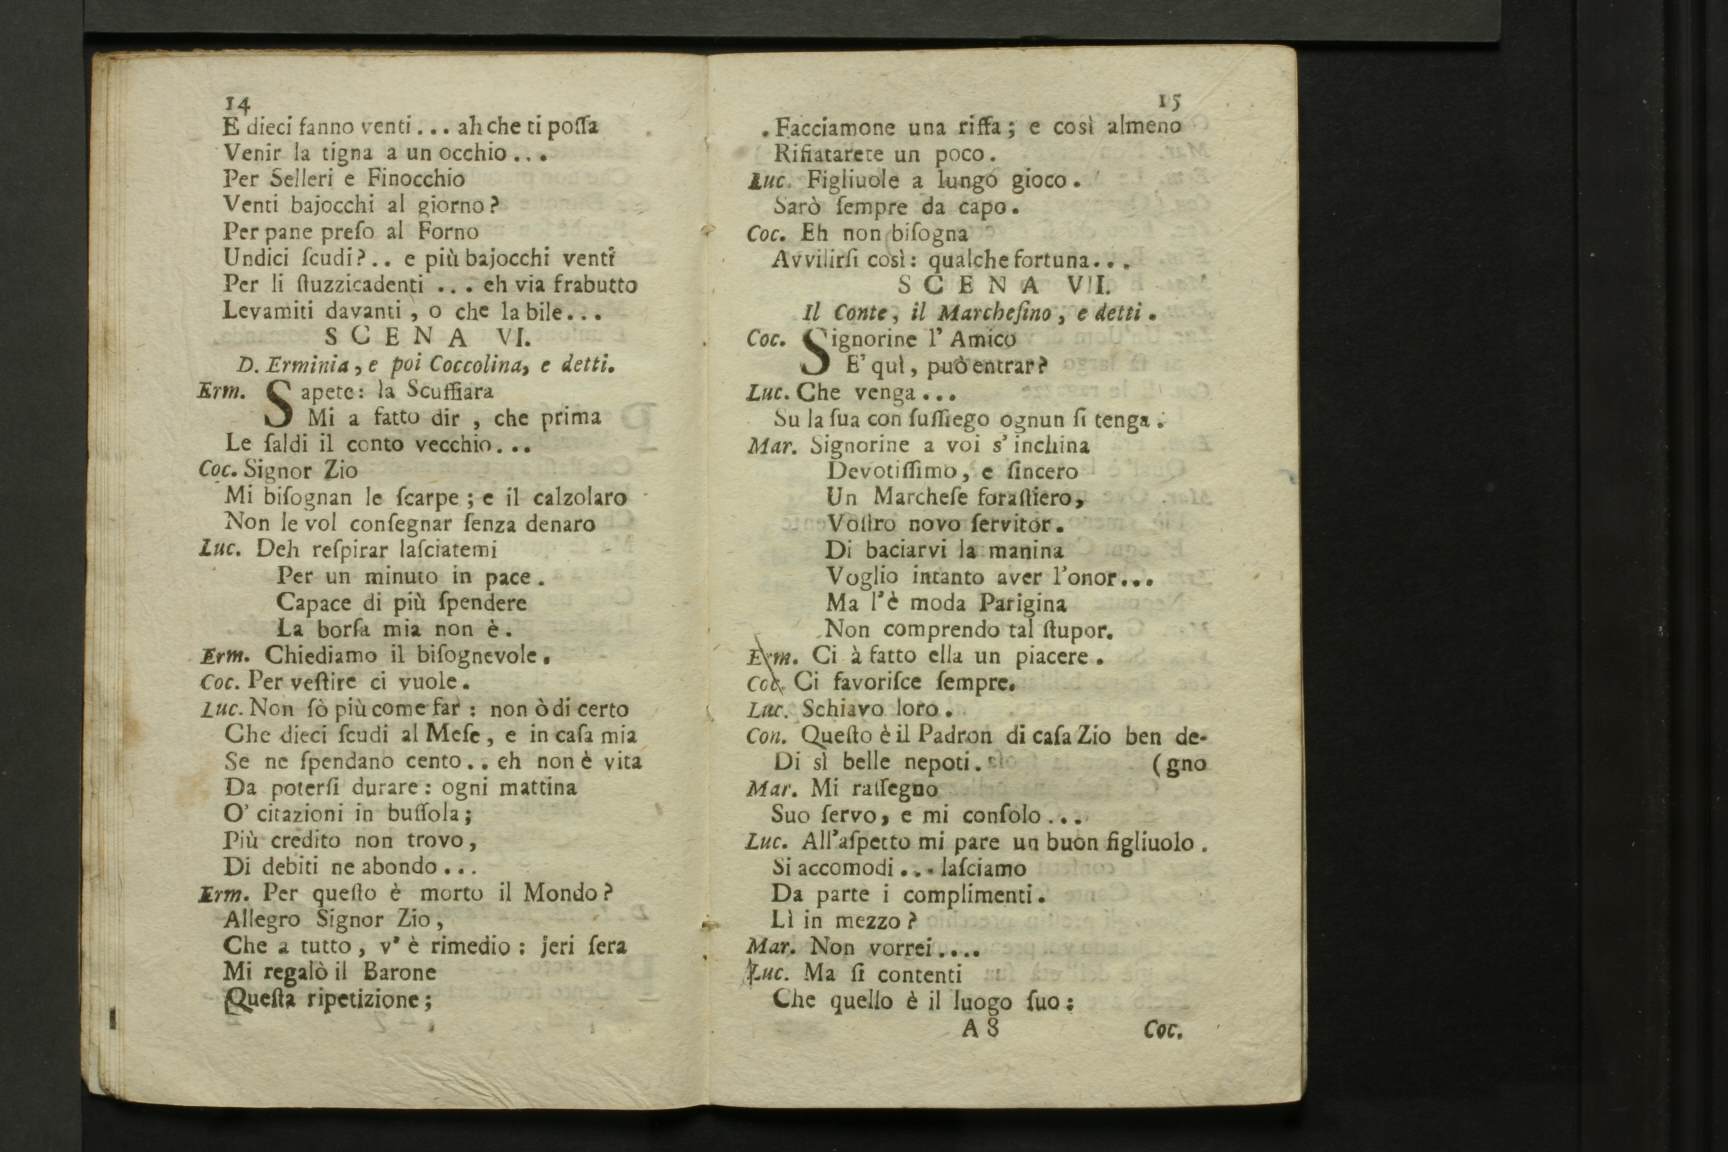 14
E dieci fanno venti... ah che ti poſſa
Venir la tigna a un occhio...
Per Selleri e Finocchio
Venti bajocchi al giorno?
Per pane preſo al Forno
Undici ſcudi?.. e più bajocchi venti
Per li ſtuzzicadenti ... eh via frabutto
Levamiti davanti, o che la bile...
SCENA VI.
D. Erminia, e poi Coccolina, e detti.
Erm. Sapete: la Scuffiara
Mi a fatto dir , che prima
Le ſaldi il conto vecchio...
Coc. Signor Zio
Mi biſognan le ſcarpe; e il calzolaro
Non le vol conſegnar ſenza denaro
Luc. Deh reſpirar laſciatemi
Per un minuto in pace.
Capace di più ſpendere
La borſa mia non è.
Erm. Chiediamo il biſognevole.
Coc. Per veſtire ci vuole.
Luc. Non ſò più come far : non ò di certo
Che dieci ſcudi al Meſe, e in caſa mia
Se ne ſpendano cento.. eh non è vita
Da poterſi durare: ogni mattina
O' citazioni in buſſola;
Più credito non trovo,
Di debiti ne abondo...
Erm. Per queſto è morto il Mondo?
Allegro Signor Zio,
Che a tutto, v' è rimedio: jeri ſera
Mi regalò il Barone
Queſta ripetizione;
15
Facciamone una riffa; e così almeno
Rifiatarete un poco.
Luc. Figliuole a lungo gioco.
Sarò ſempre da capo.
Coc. Eh non biſogna
Avvilirſi così: qualche fortuna...
SCENA VII.
Il Conte, il Marcheſino, e detti.
Coc. Signorine l' Amico
E' quì, può entrar?
Luc. Che venga...
Su la ſua con ſuſſiego ognun ſi tenga.
Mar. Signorine a voi s' inchina
Devotiſſimo, e ſincero
Un Marcheſe foraſtiero,
Voſtro novo ſervitor.
Di baciarvi la manina
Voglio intanto aver l'onor...
Ma l'è moda Parigina
Non comprendo tal ſtupor.
Erm. Ci à fatto ella un piacere.
Coc. Ci favoriſce ſempre.
Luc. Schiavo loro.
Con. Queſto è il Padron di caſa Zio ben de-
Di sì belle nepoti. (gno
Mar. Mi raſſegno
Suo ſervo, e mi conſolo...
Luc. All'aſpetto mi pare un buon figliuolo.
Si accomodi... laſciamo
Da parte i complimenti.
Lì in mezzo?
Mar. Non vorrei....
Luc. Ma ſi contenti
Che quello è il luogo ſuo:
A 8 Coc.